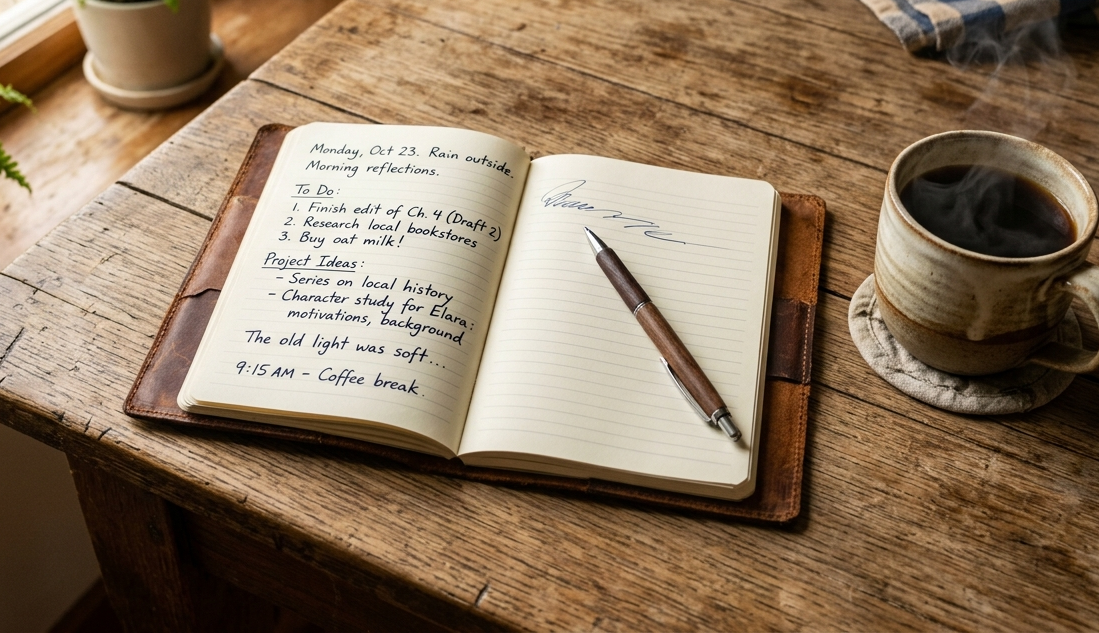 Monday, Oct 23. Rain outside.
Morning reflections.
To Do:
1. Finish edit of Ch. 4 (Draft 2)
2. Research local bookstores
3. Buy oat milk!
Project Ideas:
- Series on local history
- Character study for Elara:
motivations, background
The old light was soft...
9:15 AM - Coffee break.